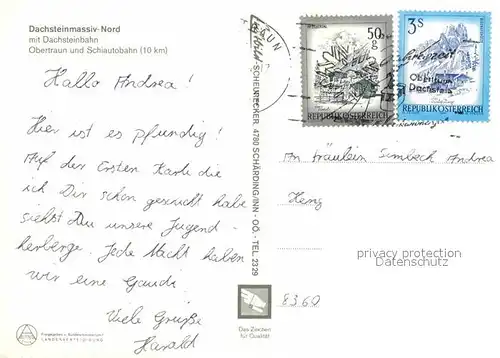 Dachsteinmassiv-Nord
mit Dachsteinbahn
Obertraun und Schiautobahn (10 km)
Hallo Andrea!
Hier ist es pfundig!
Auf der Ersten Karte die
ich Dir schon geschickt habe
siehst Du unsere Jugend-
herberge. Jede Nacht haben
wir eine Gaudi
Viele Grüße
Harald
LANDESVERTEIDIGUNG
4780 SCHÄRDING/INN - OÖ. - TEL 2329
50 g
REPUBLIK ÖSTERREICH
3 S
REPUBLIK ÖSTERREICH
Obertraun
Dachstein
An Fräulein Simbeck Andrea
privacy protection
Datenschutz
8360
Das Zeichen
für Qualität